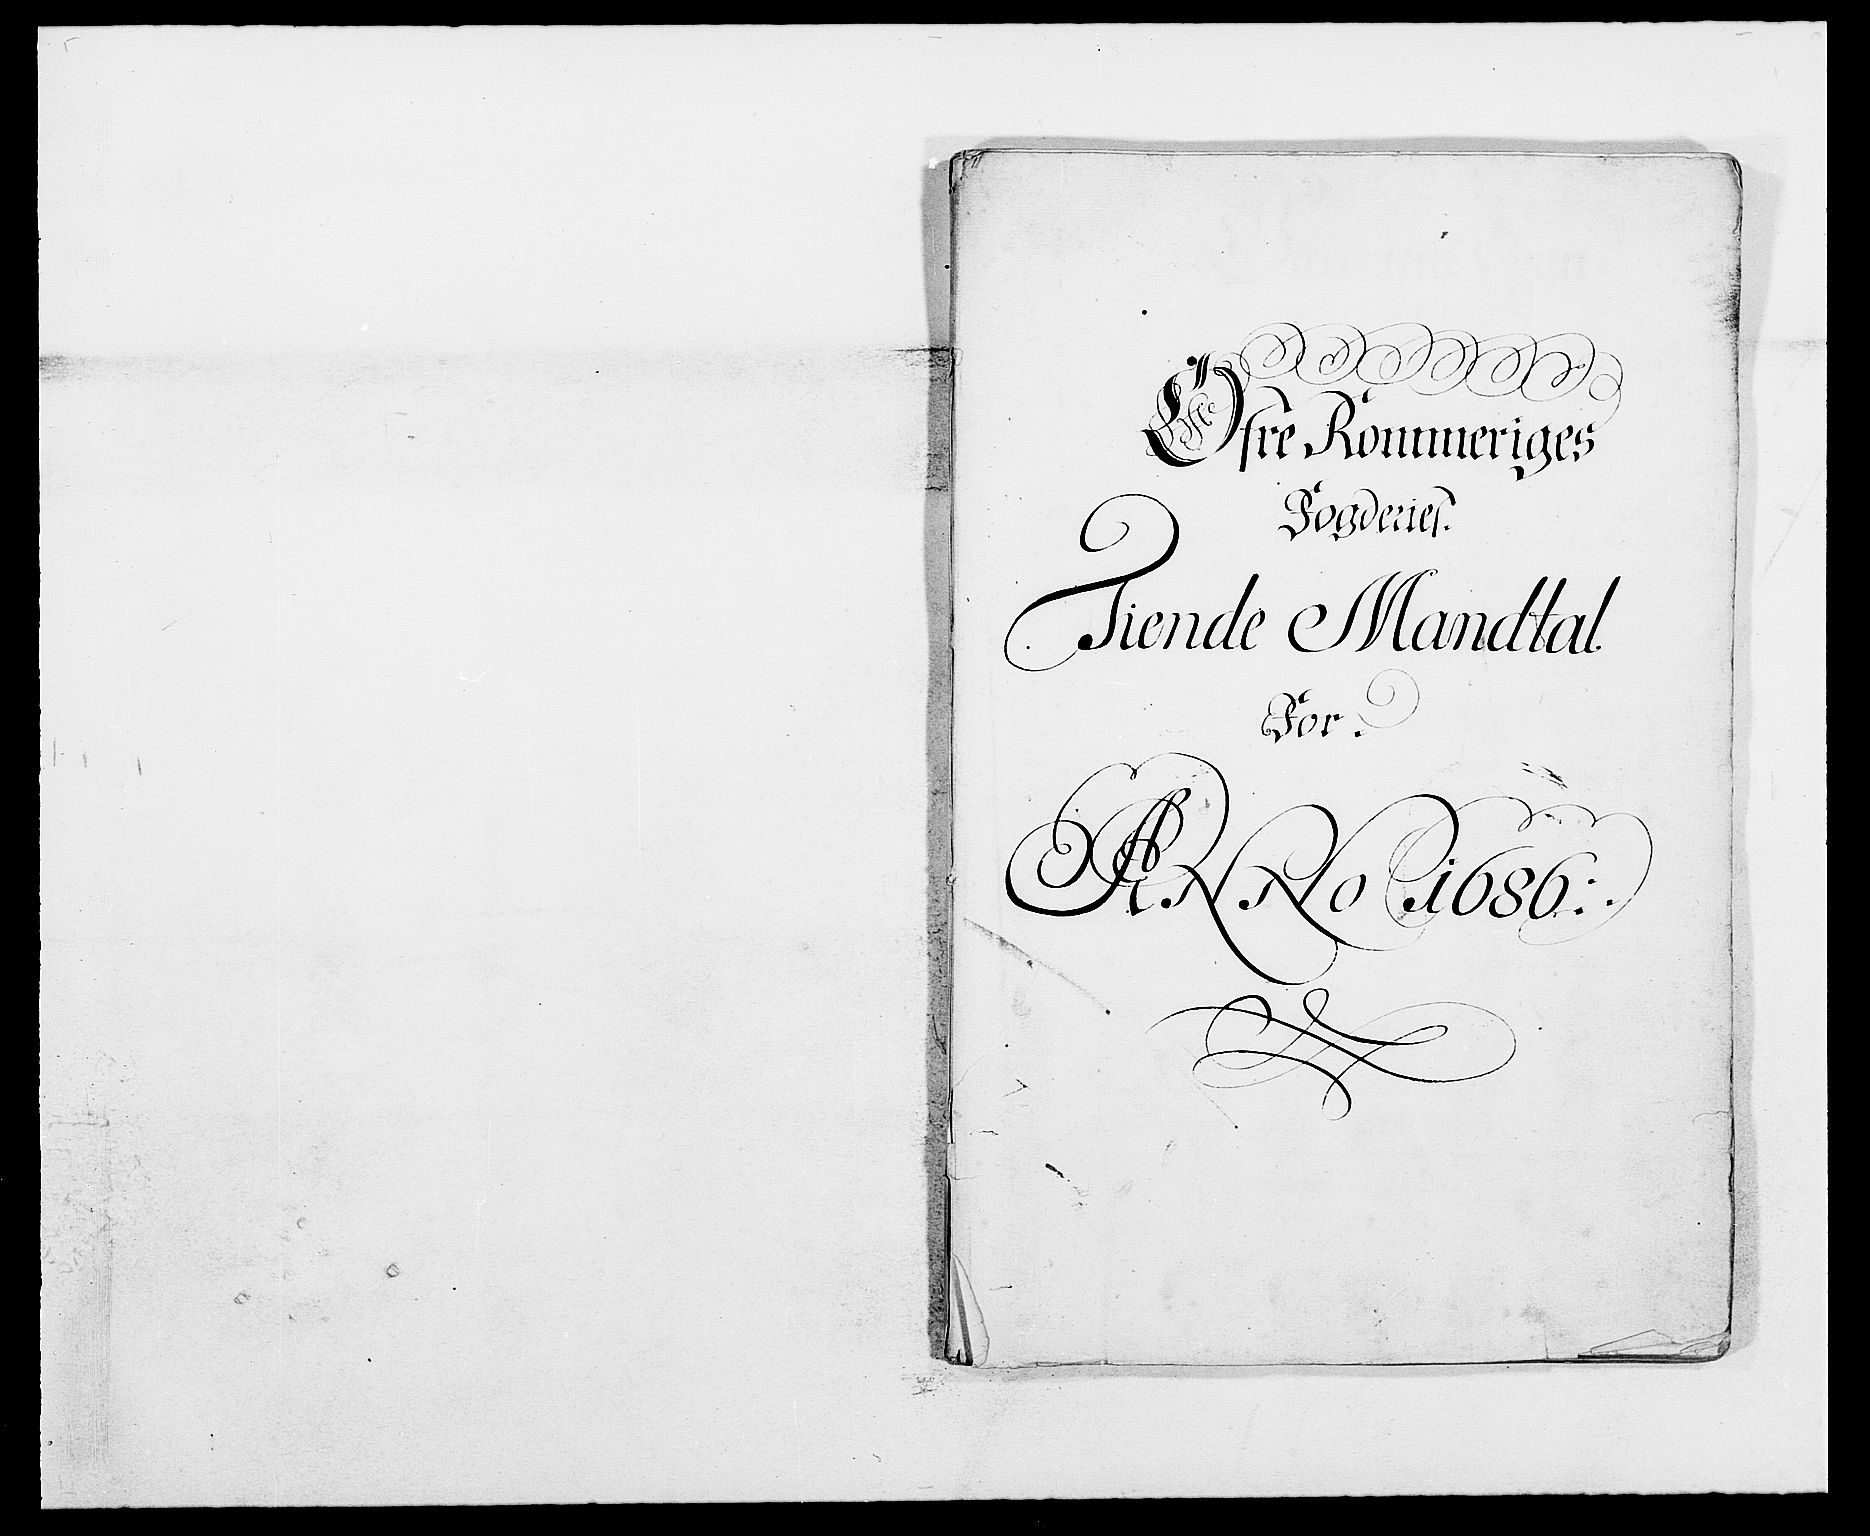 Öfre Rommeriges
Fogderies.
Tiende Mandtal
For.
ANNo 1686:.